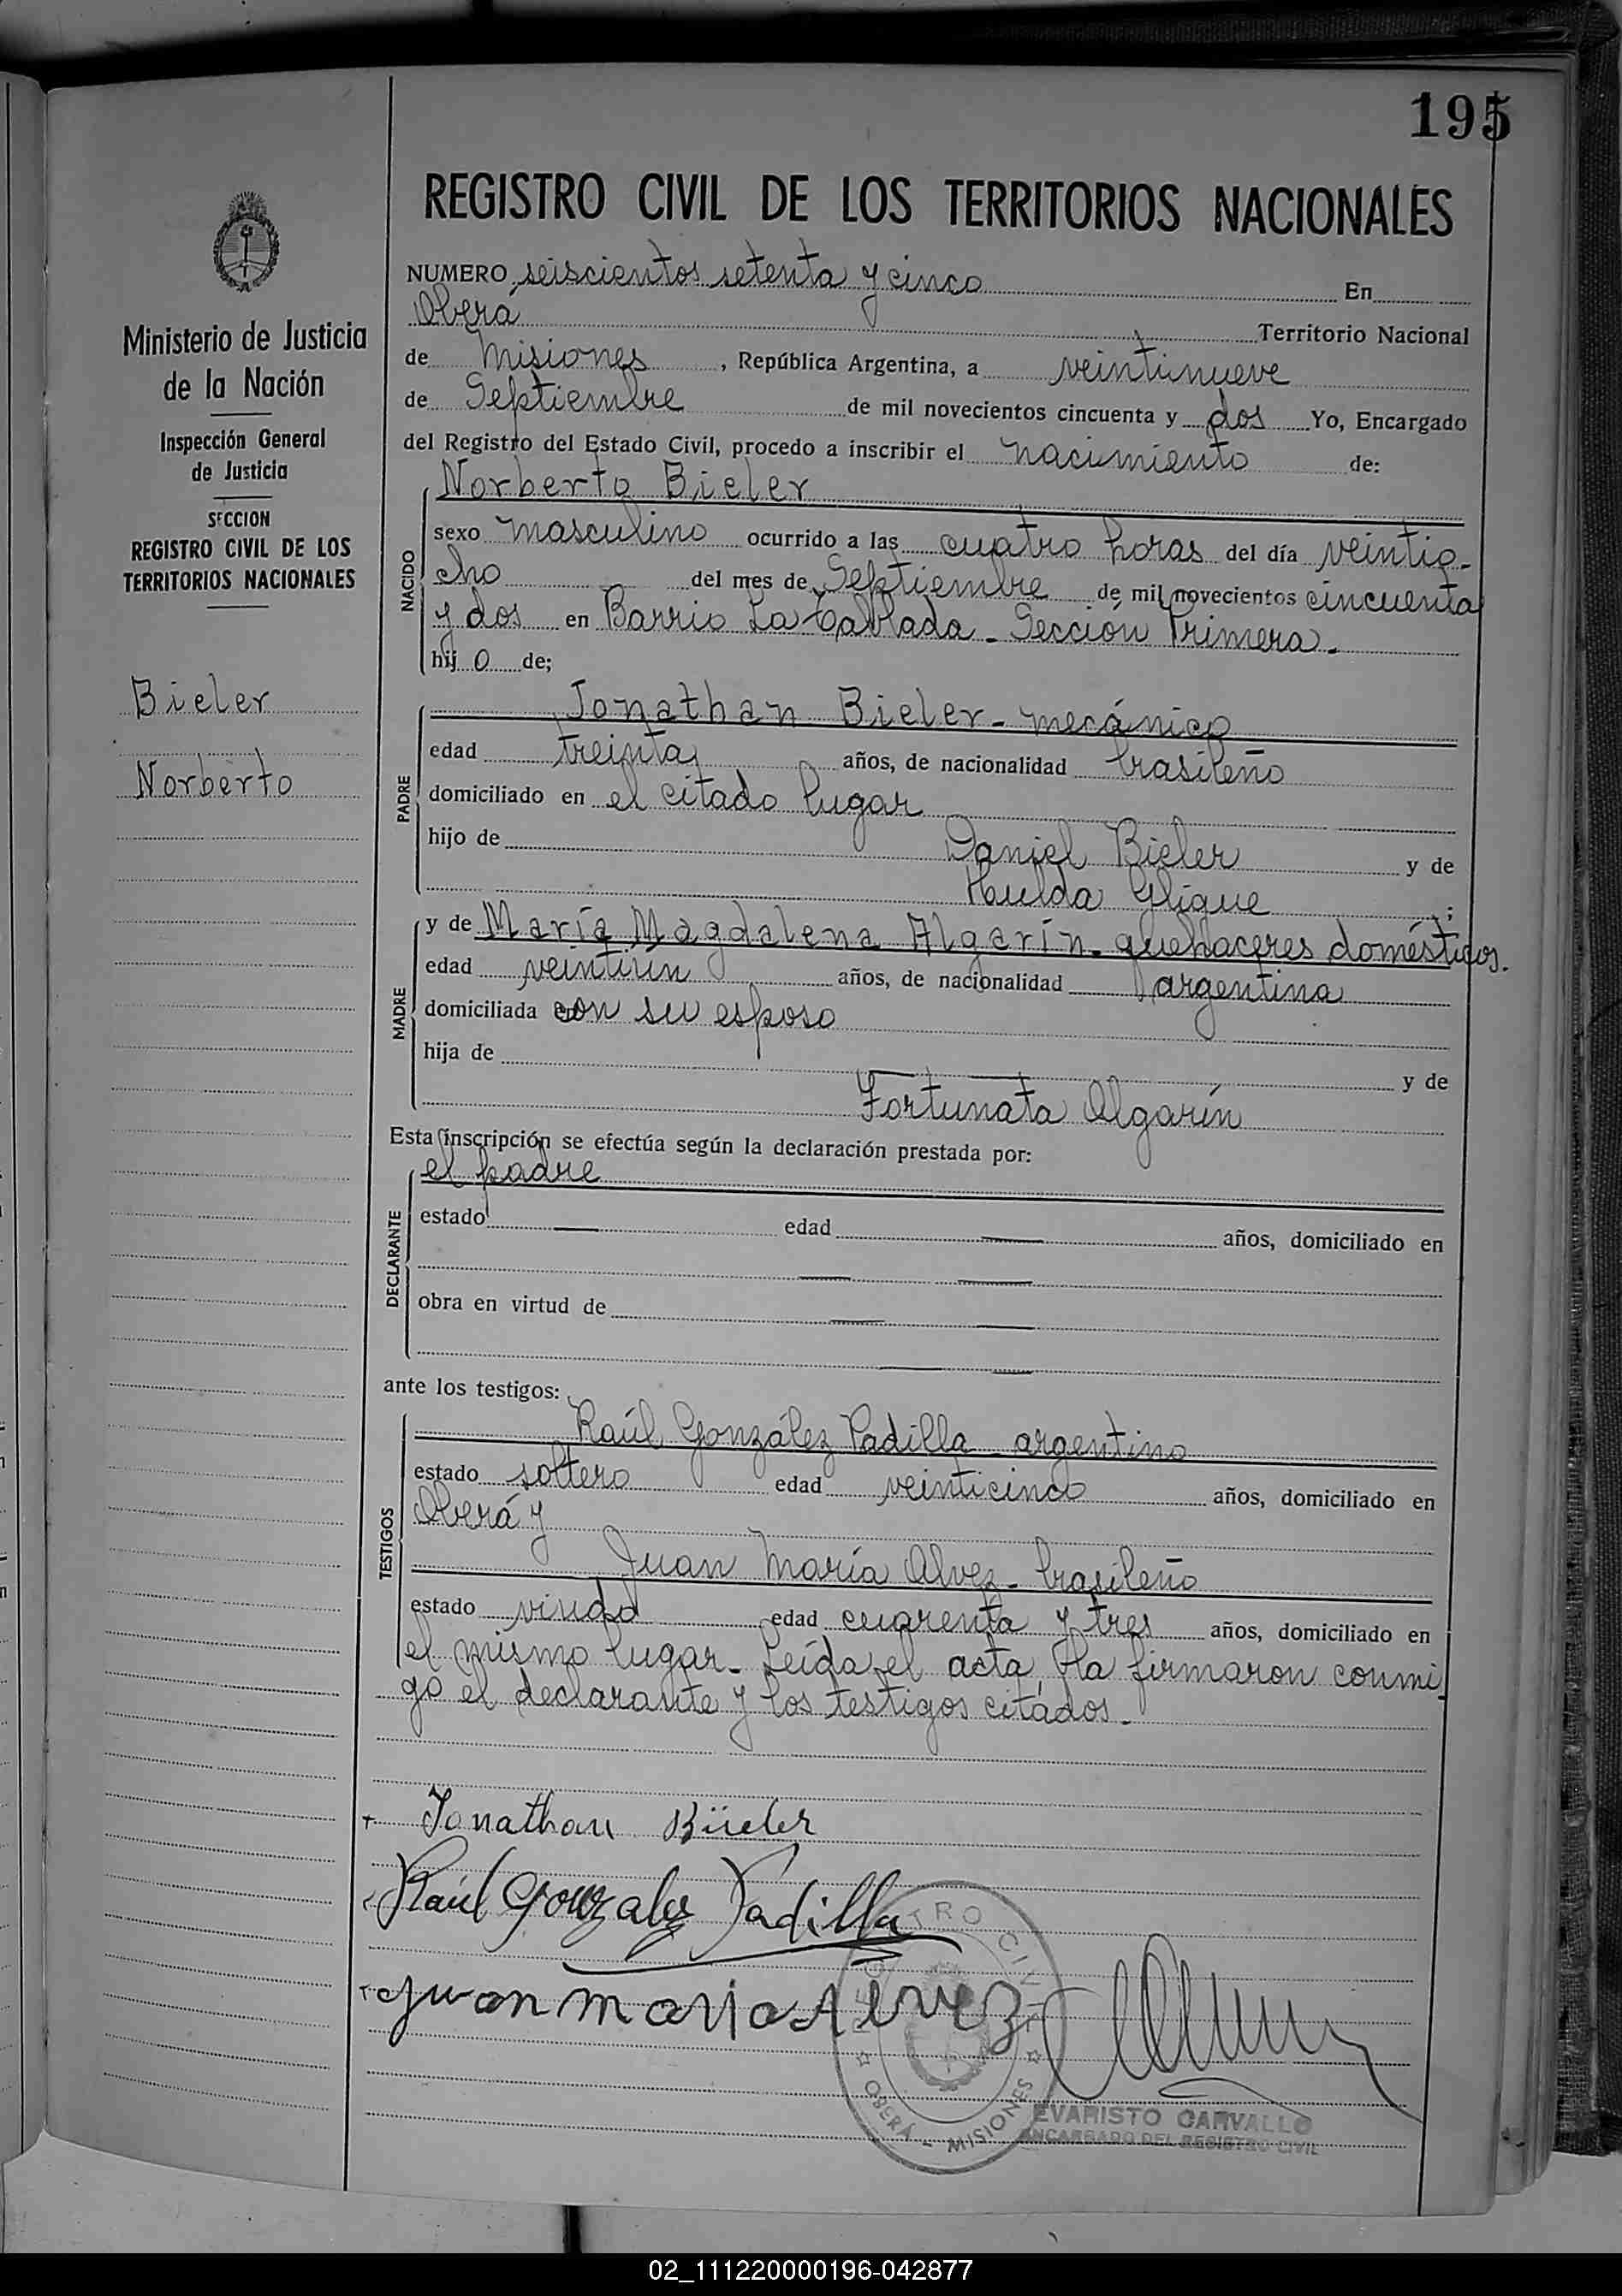 195
REGISTRO CIVIL DE LOS TERRITORIOS NACIONALES
Ministerio de Justicia
de la Nación
Inspección General
de Justicia
SECCION
REGISTRO CIVIL DE LOS
TERRITORIOS NACIONALES
Bieler
Norberto
NUMERO seiscientos setenta y cinco En
Oberá Territorio Nacional
de Misiones, República Argentina, a veintinueve
de Septiembre de mil novecientos cincuenta y dos Yo, Encargado
del Registro del Estado Civil, procedo a inscribir el nacimiento de:
Norberto Bieler
NACIDO
sexo masculino ocurrido a las cuatro horas del día veintio-
cho del mes de Septiembre de mil novecientos cincuenta
y dos en Barrio La Tablada - Sección Primera.
hijo de;
PADRE
Jonathan Bieler - mecánico
edad treinta años, de nacionalidad brasileño
domiciliado en el citado lugar
hijo de Daniel Bieler y de
Hulda Gligue;
MADRE
y de María Magdalena Algarín - quehaceres domésticos.
edad veintiún años, de nacionalidad argentina
domiciliada con su esposo
hija de — — y de
Fortunata Algarín
Esta inscripción se efectúa según la declaración prestada por:
el padre
DECLARANTE
estado — edad — años, domiciliado en
— —
obra en virtud de — —
— —
ante los testigos:
TESTIGOS
Raúl González Padilla argentino
estado soltero edad veinticinco años, domiciliado en
Oberá y
Juan María Alvez - brasileño
estado viudo edad cuarenta y tres años, domiciliado en
el mismo lugar. Leída el acta, la firmaron conmi-
go el declarante y los testigos citados.
Jonathan Büeler
Raúl Gonzalez Padilla
Juan Maria Alvez
REGISTRO CIVIL
OBERÁ - MISIONES
EVARISTO CARVALLO
ENCARGADO DEL REGISTRO CIVIL
02_111220000196-042877